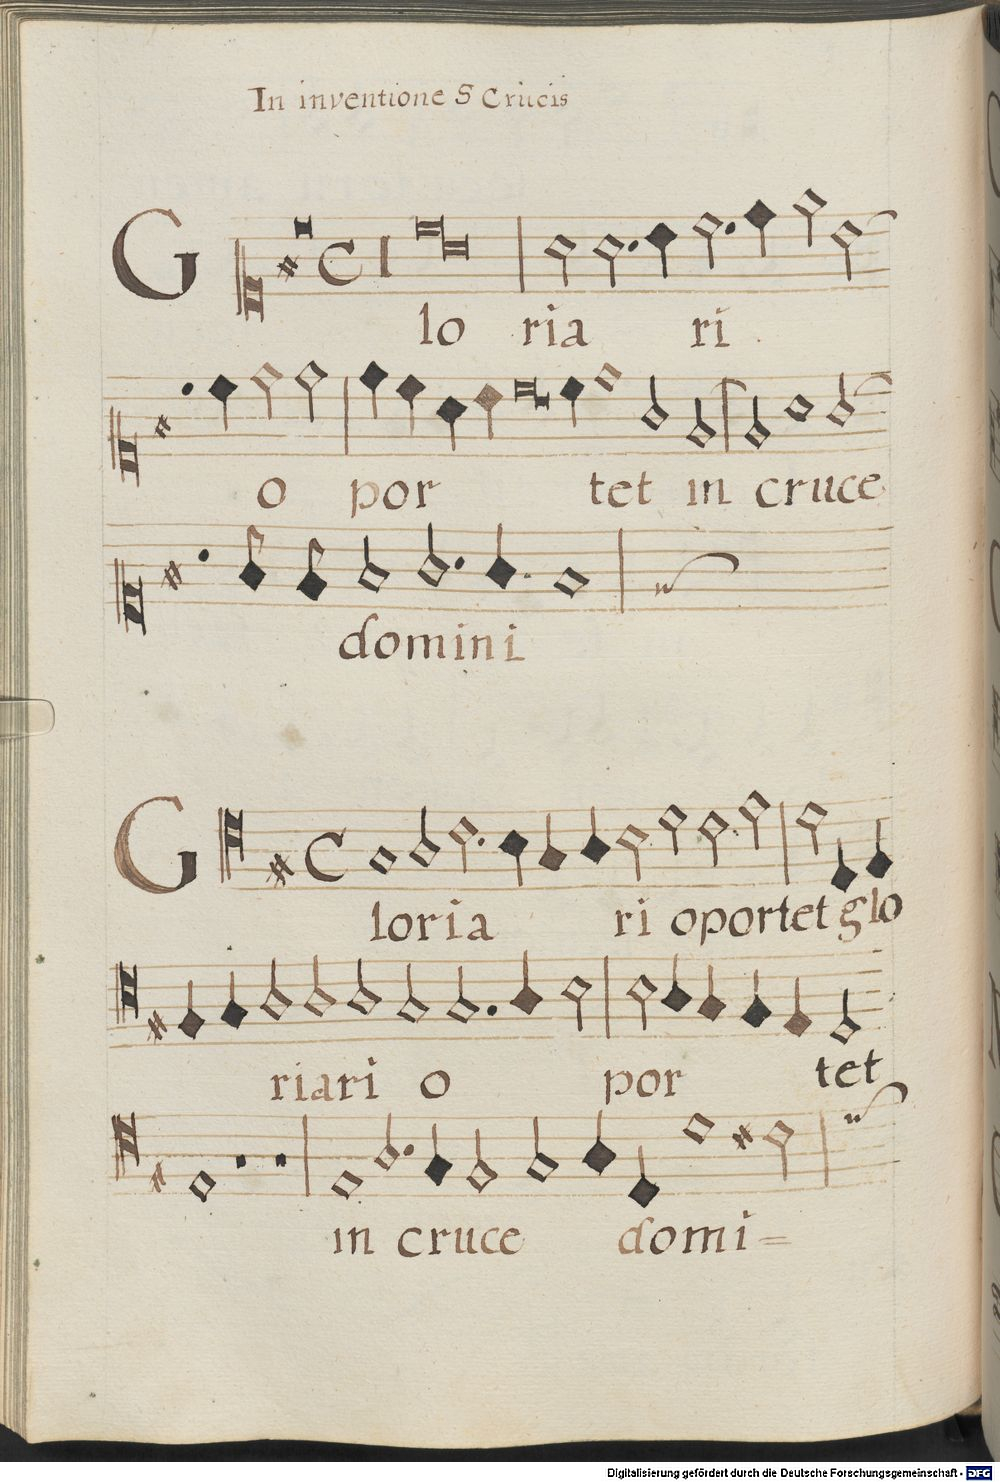 In inventione S Crucis
G lo ria ri
o por tet in cruce
domini
G loria ri oportet glo
riari o por tet
in cruce domi=
Digitalisierung gefördert durch die Deutsche Forschungsgemeinschaft - DFG